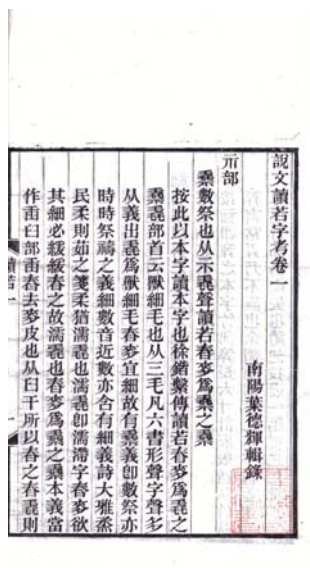 說文讀若字考卷一
南陽葉德輝輯錄
示部
數祭也从示毳聲讀若舂麥爲之
按此以本字讀本字也徐鍇繫傳讀若舂麥爲毳之
毳部首云獸細毛也从三毛凡六書形聲字聲多
从義出毳爲獸細毛舂麥宜細故有毳義卽數祭亦
時時祭禱之義細數音近數亦含有細義詩大雅烝
民柔則茹之箋柔猶濡毳也濡毳卽濡滯字舂麥欲
其細必緩緩舂之故濡毳也舂麥爲之本義當
作臿臼部臿舂去麥皮也从臼干所以舂之舂毳則